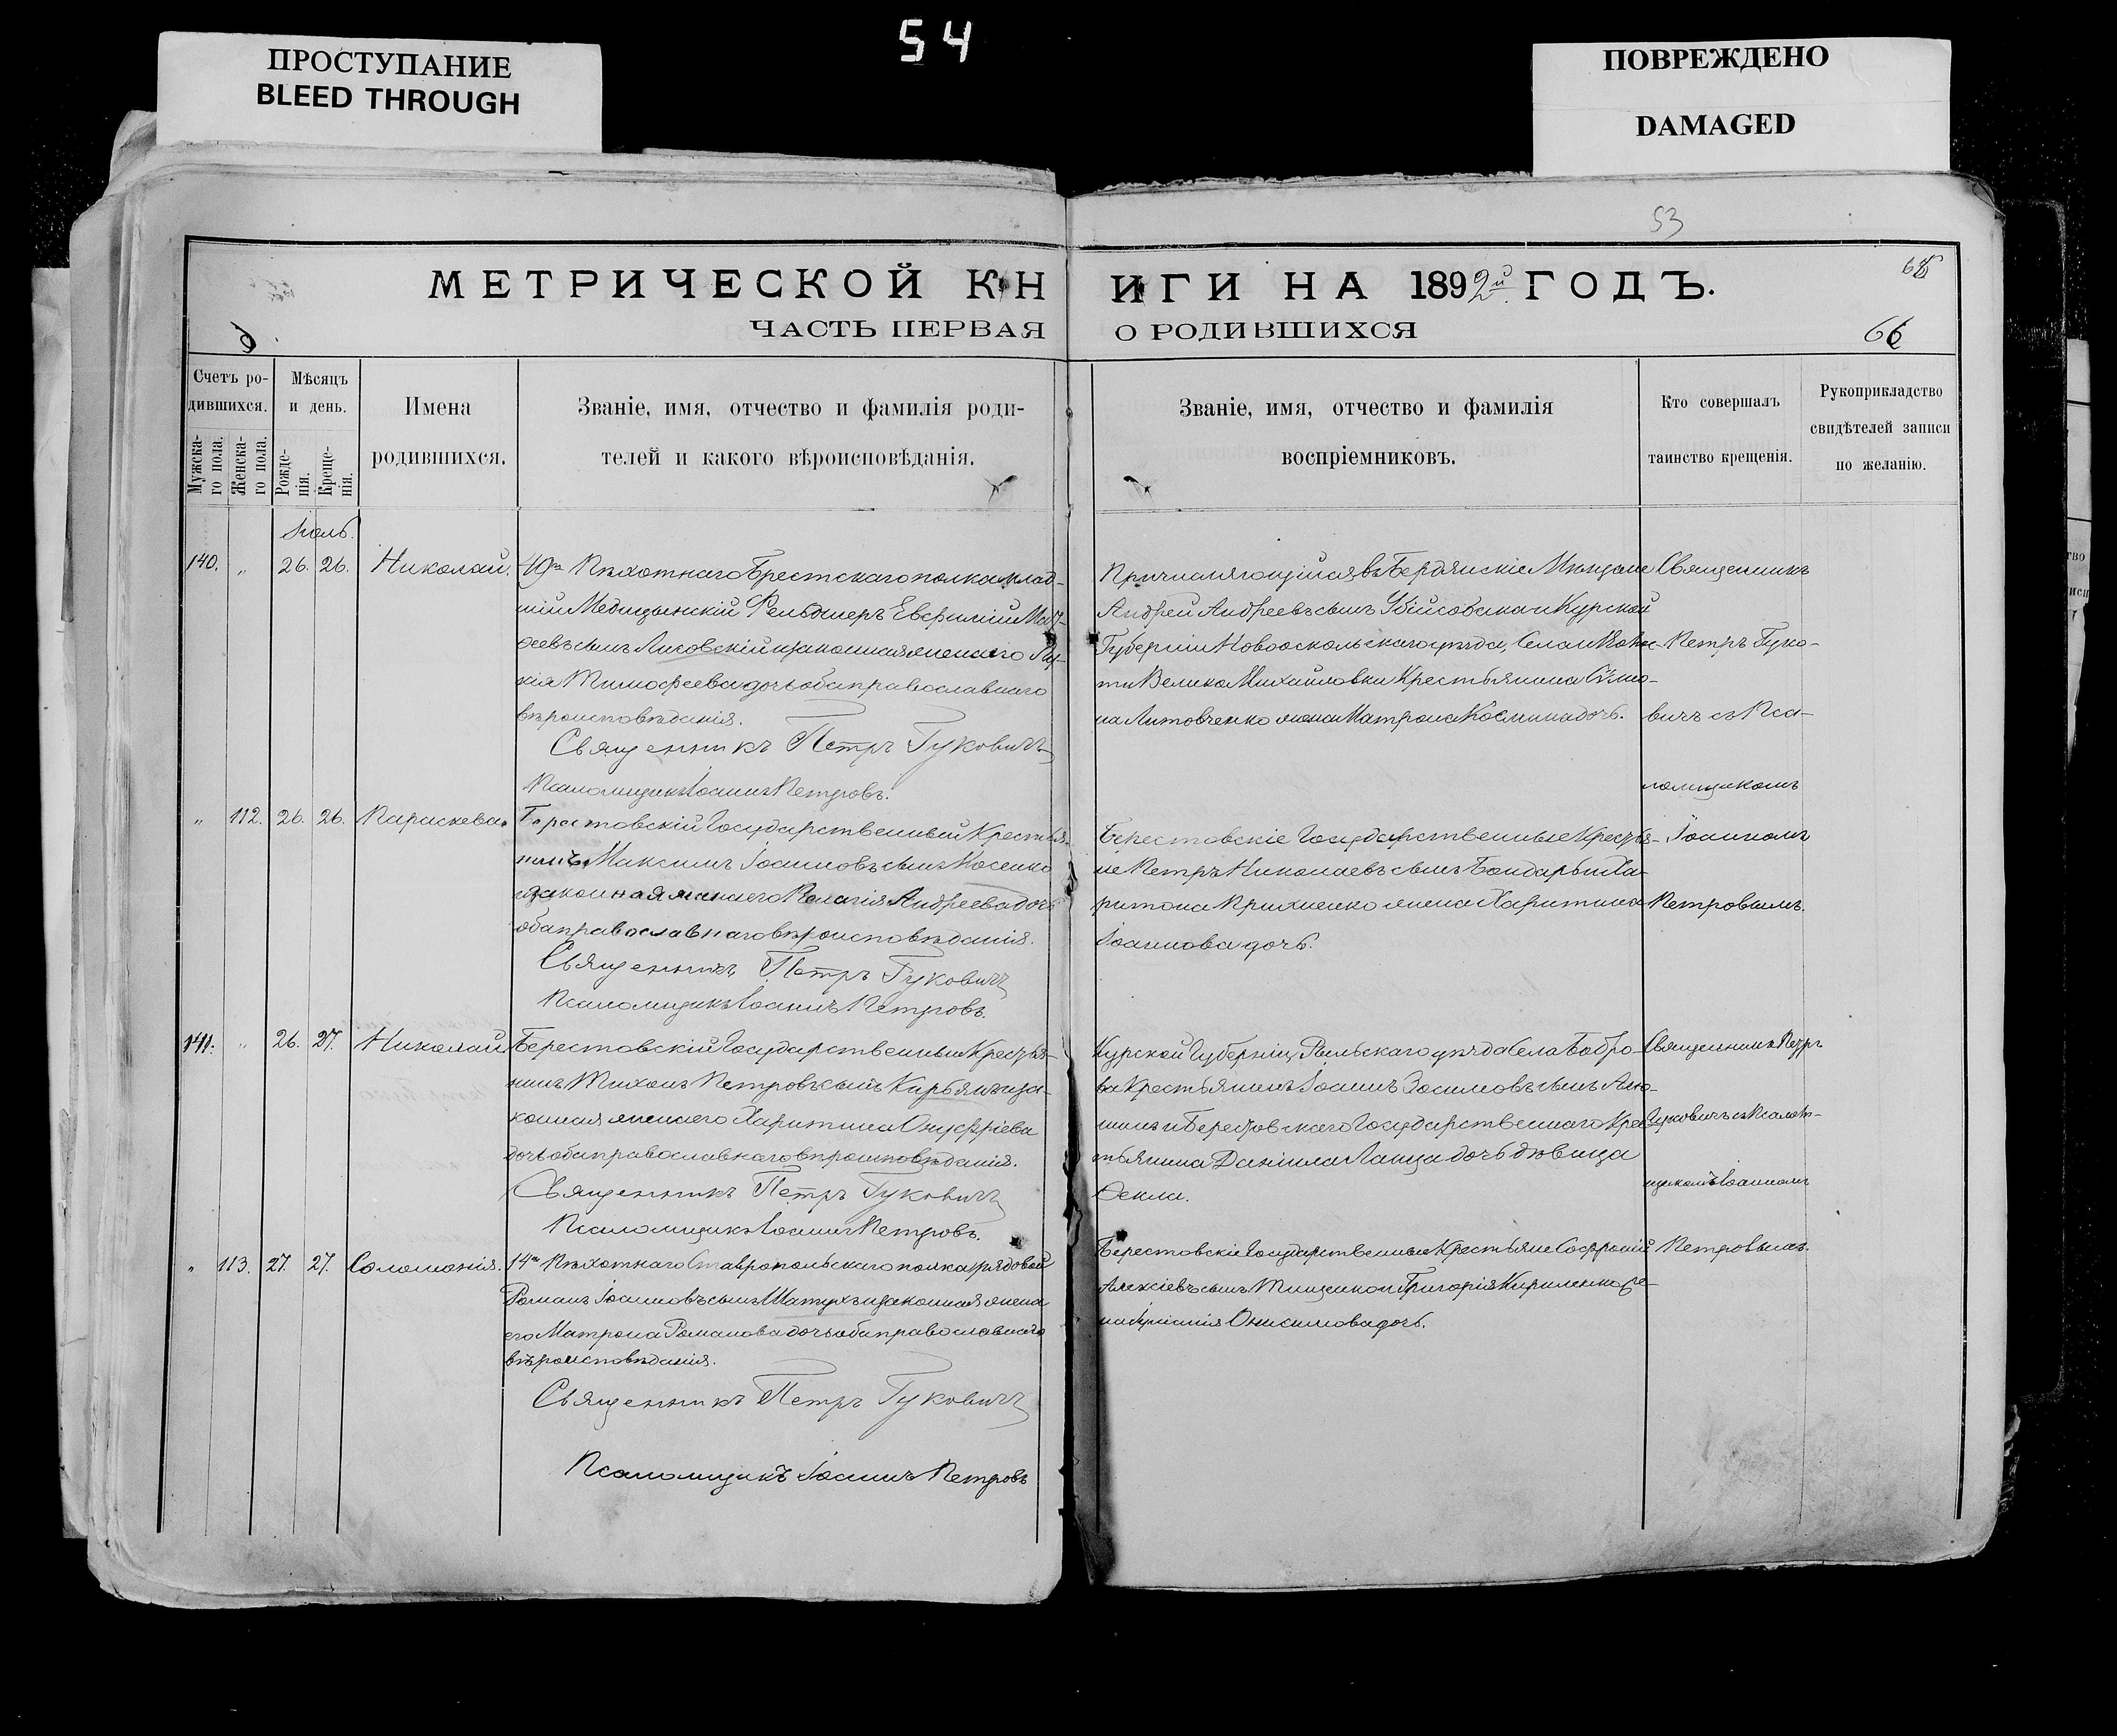 54
ПРОСТУПАНИЕ
BLEED THROUGH
ПОВРЕЖДЕНО
DAMAGED
53
МЕТРИЧЕСКОЙ КНИГИ НА 1892й ГОДЪ.
ЧАСТЬ ПЕРВАЯ О РОДИВШИХСЯ
66
Счетъ ро-
дившихся.
Мужска-
го пола.
Женска-
го пола.
Мѣсяцъ
и день.
Рожде-
нія.
Креще-
нія.
Имена
родившихся.
Званіе, имя, отчество и фамилія роди-
телей и какого вѣроисповѣданія.
Званіе, имя, отчество и фамилія
воспріемниковъ.
Кто совершалъ
таинство крещенія.
Рукоприкладство
свидѣтелей записи
по желанію.
Іюль.
140. „ 26. 26. Николай.
49го Пѣхотнаго Брестскаго полка млад-
шій Медицынскій Фельдшеръ Евфимій
сынъ Лисовскій и законная жена его
кія Тимофеева дочь оба православнаго
вѣроисповѣданія.
Священникъ Петръ Гуковичъ
Псаломщикъ Іоаннъ Петровъ.
Андрей Андреевъ сынъ и Курской
Губерніи Новооскольскаго уѣзда,
Велико Михайловки Крестьянина Симо-
на Литовченко жена Матрона Космина дочь.
Священникъ
Петръ Гуко-
вичъ съ Пса-
ломщикомъ
Іоанномъ
Петровымъ.
„ 112. 26. 26. Параскева.
Берестовскій Государственный Крестья-
нинъ Максимъ Іоанновъ сынъ Косенко
и законная жена его Пелагія Андреева дочь
оба православнаго вѣроисповѣданія.
Священникъ Петръ Гуковичъ
Псаломщикъ Іоаннъ Петровъ.
Берестовскіе Государственные Крестья-
не Петръ Николаевъ сынъ Бондарь и Ха-
ритона жена Харитина
Іоаннова дочь.
141. „ 26. 27. Николай.
Берестовскій Государственный Крестья-
нинъ Тихонъ Петровъ сынъ и за-
конная жена его Харитина Онуфріева
дочь оба православнаго вѣроисповѣданія.
Священникъ Петръ Гуковичъ
Псаломщикъ Іоаннъ Петровъ.
Курской Губерніи, Рыльскаго уѣзда Села Бобро-
ва Крестьянинъ Іоаннъ Зосимовъ сынъ Аню-
шинъ и Берестовскаго Государственнаго Крес-
тьянина Даніила Лапца дочь дѣвица
Ѳекла.
Священникъ Петръ
Гуковичъ съ Псалом-
щикомъ Іоанномъ
Петровымъ.
„ 113. 27. 27. Соломонія.
14го Пѣхотнаго Ставропольскаго полка рядовой
Романъ Іоанновъ сынъ Шатухъ и законная жена
его Матрона Романова дочь оба православнаго
вѣроисповѣданія.
Священникъ Петръ Гуковичъ
Псаломщикъ Іоаннъ Петровъ
Берестовскіе Государственные Крестьяне Софроній
Алексіевъ сынъ Тищенко и Григорія Кириленко же-
на Онисимова дочь.